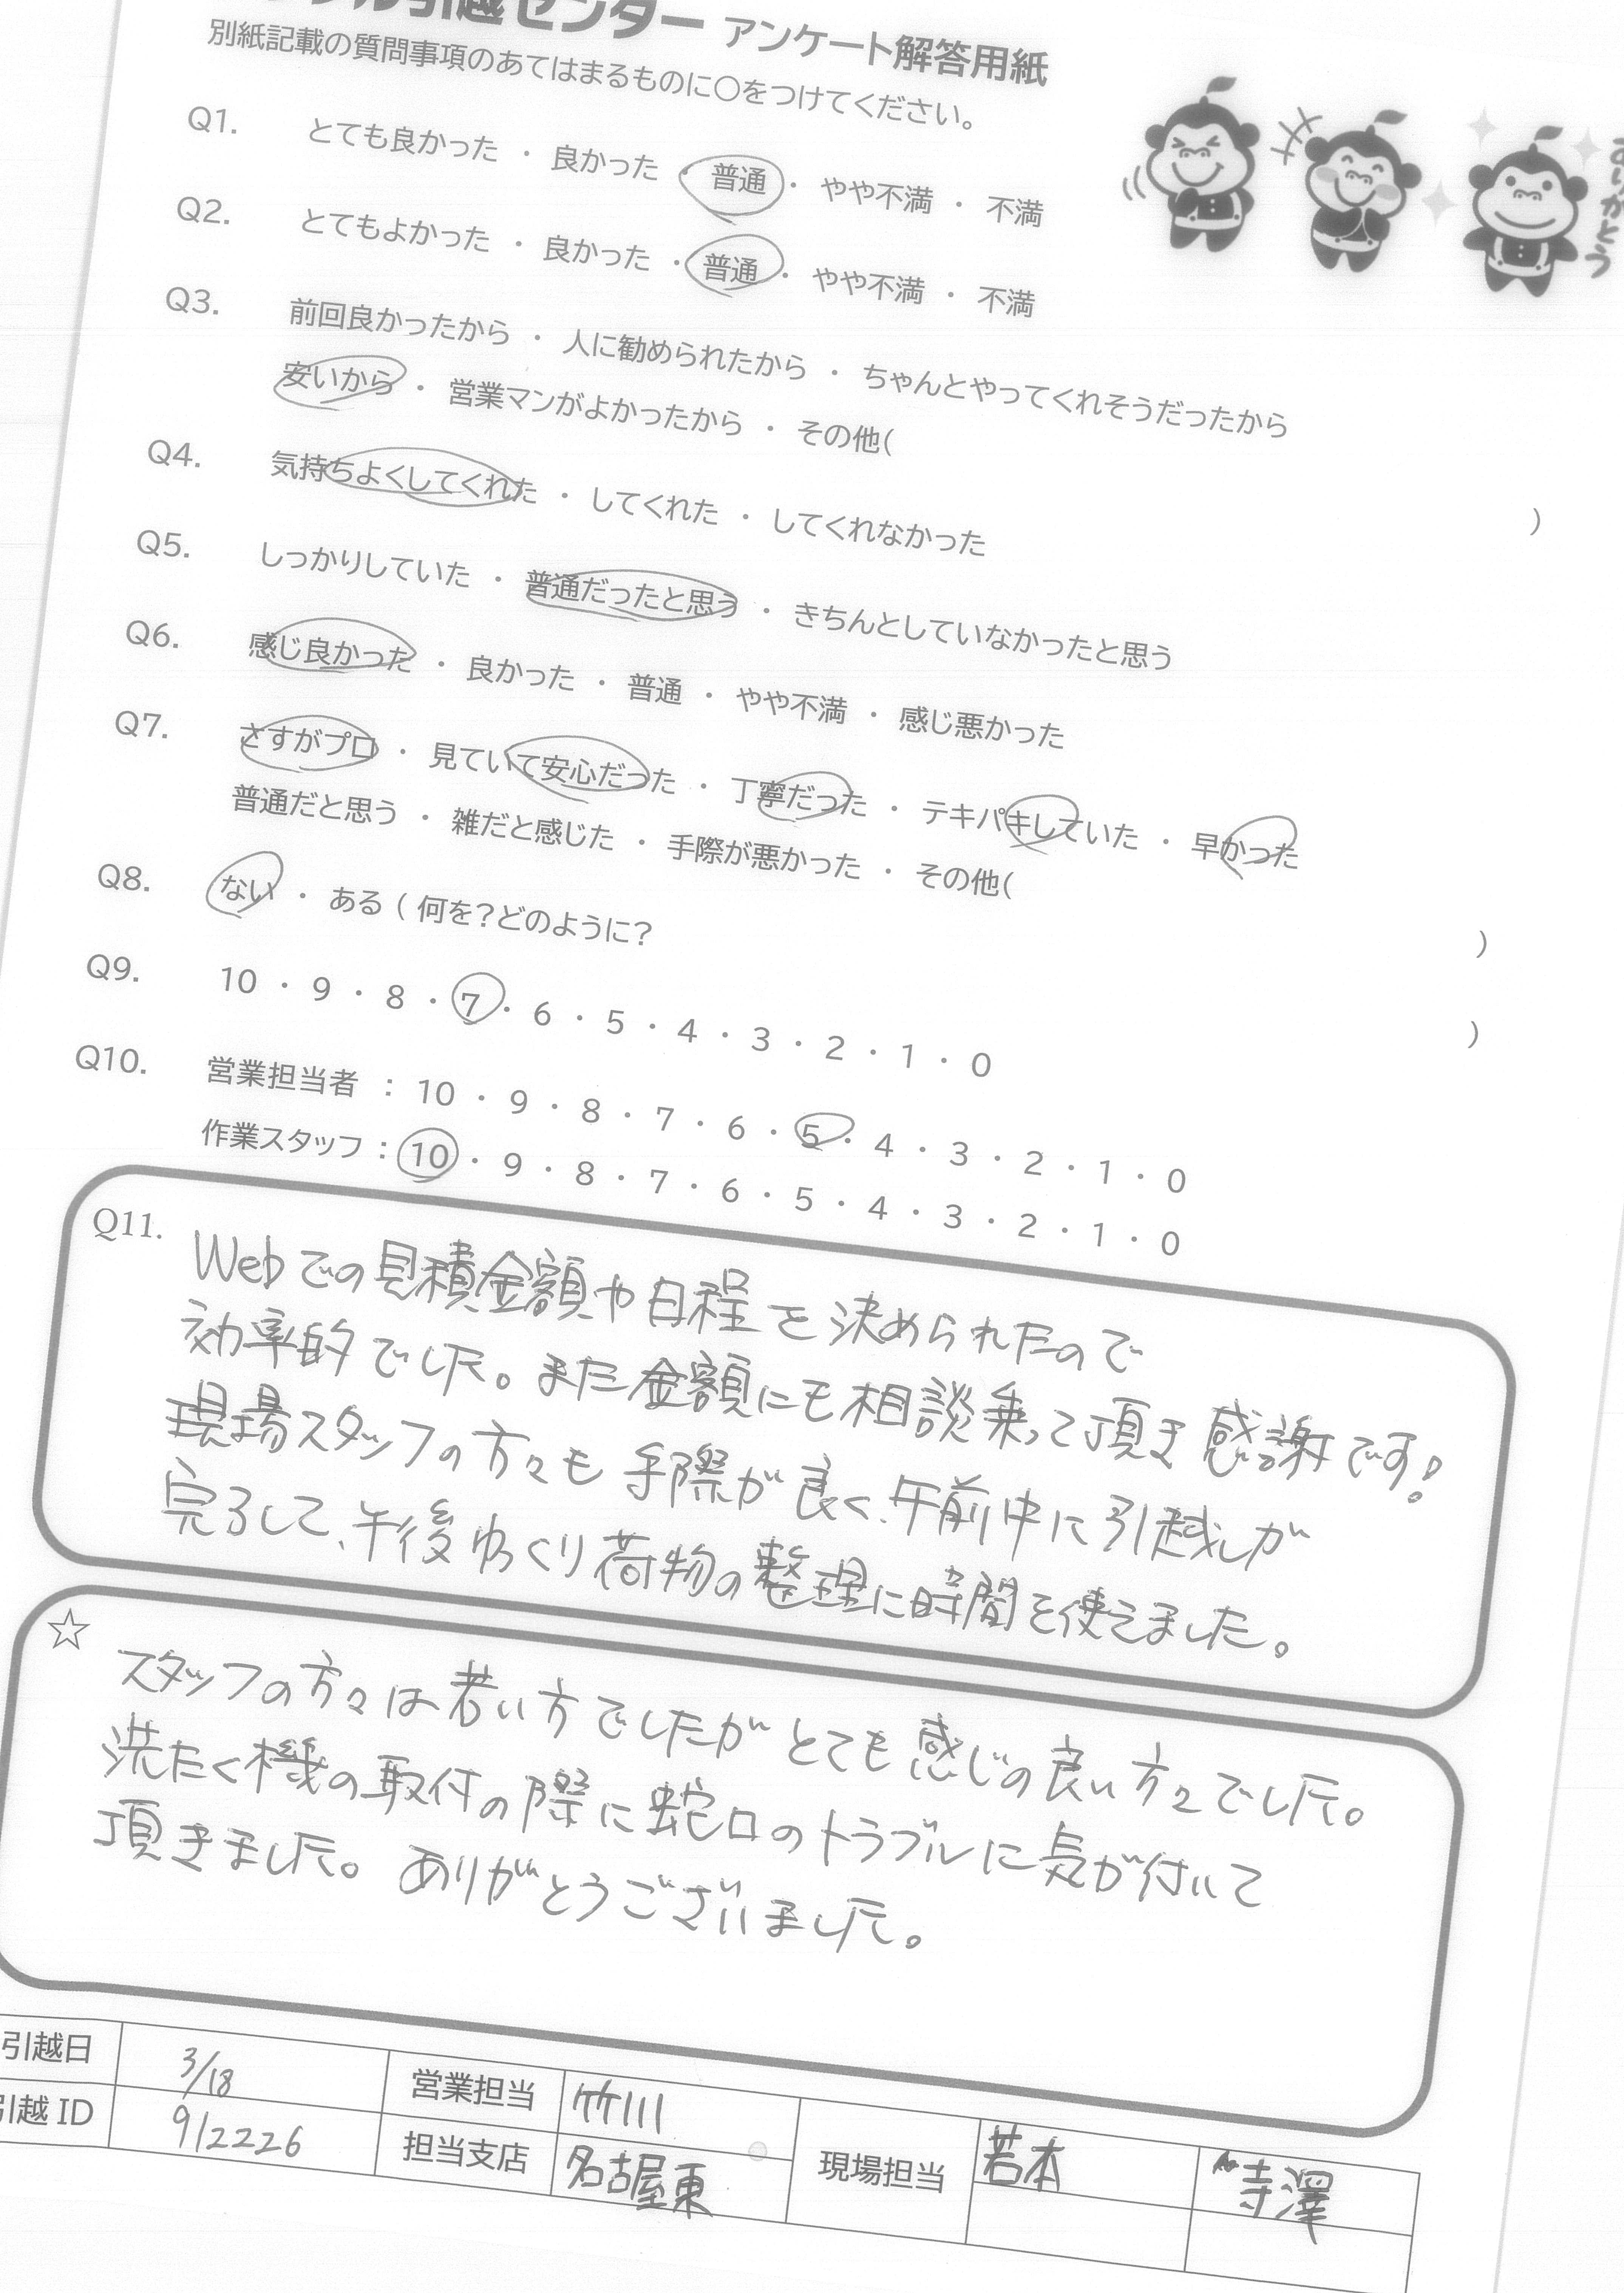 引越センター アンケート解答用紙
別紙記載の質問事項のあてはまるものに○をつけてください。
Q1. とても良かった ・ 良かった ・ 普通 ・ やや不満 ・ 不満
Q2. とてもよかった ・ 良かった ・ 普通 ・ やや不満 ・ 不満
Q3. 前回良かったから ・ 人に勧められたから ・ ちゃんとやってくれそうだったから
安いから ・ 営業マンがよかったから ・ その他( )
Q4. 気持ちよくしてくれた ・ してくれた ・ してくれなかった
Q5. しっかりしていた ・ 普通だったと思う ・ きちんとしていなかったと思う
Q6. 感じ良かった ・ 良かった ・ 普通 ・ やや不満 ・ 感じ悪かった
Q7. さすがプロ ・ 見ていて安心だった ・ 丁寧だった ・ テキパキしていた ・ 早かった
普通だと思う ・ 雑だと感じた ・ 手際が悪かった ・ その他( )
Q8. ない ・ ある ( 何を?どのように? )
Q9. 10 ・ 9 ・ 8 ・ 7 ・ 6 ・ 5 ・ 4 ・ 3 ・ 2 ・ 1 ・ 0
Q10. 営業担当者 : 10 ・ 9 ・ 8 ・ 7 ・ 6 ・ 5 ・ 4 ・ 3 ・ 2 ・ 1 ・ 0
作業スタッフ : 10 ・ 9 ・ 8 ・ 7 ・ 6 ・ 5 ・ 4 ・ 3 ・ 2 ・ 1 ・ 0
Q11. Webでの見積金額や日程を決められたので
効率的でした。また金額にも相談乗って頂き感謝です!
現場スタッフの方々も手際が良く、午前中に引越しが
完了して、午後ゆっくり荷物の整理に時間を使えました。
☆ スタッフの方々は若い方でしたがとても感じの良い方々でした。
洗たく機の取付の際に蛇口のトラブルに気が付いて
頂きました。ありがとうございました。
引越日 3/18 営業担当 竹川 現場担当 若本 寺澤
引越 ID 912226 担当支店 名古屋東